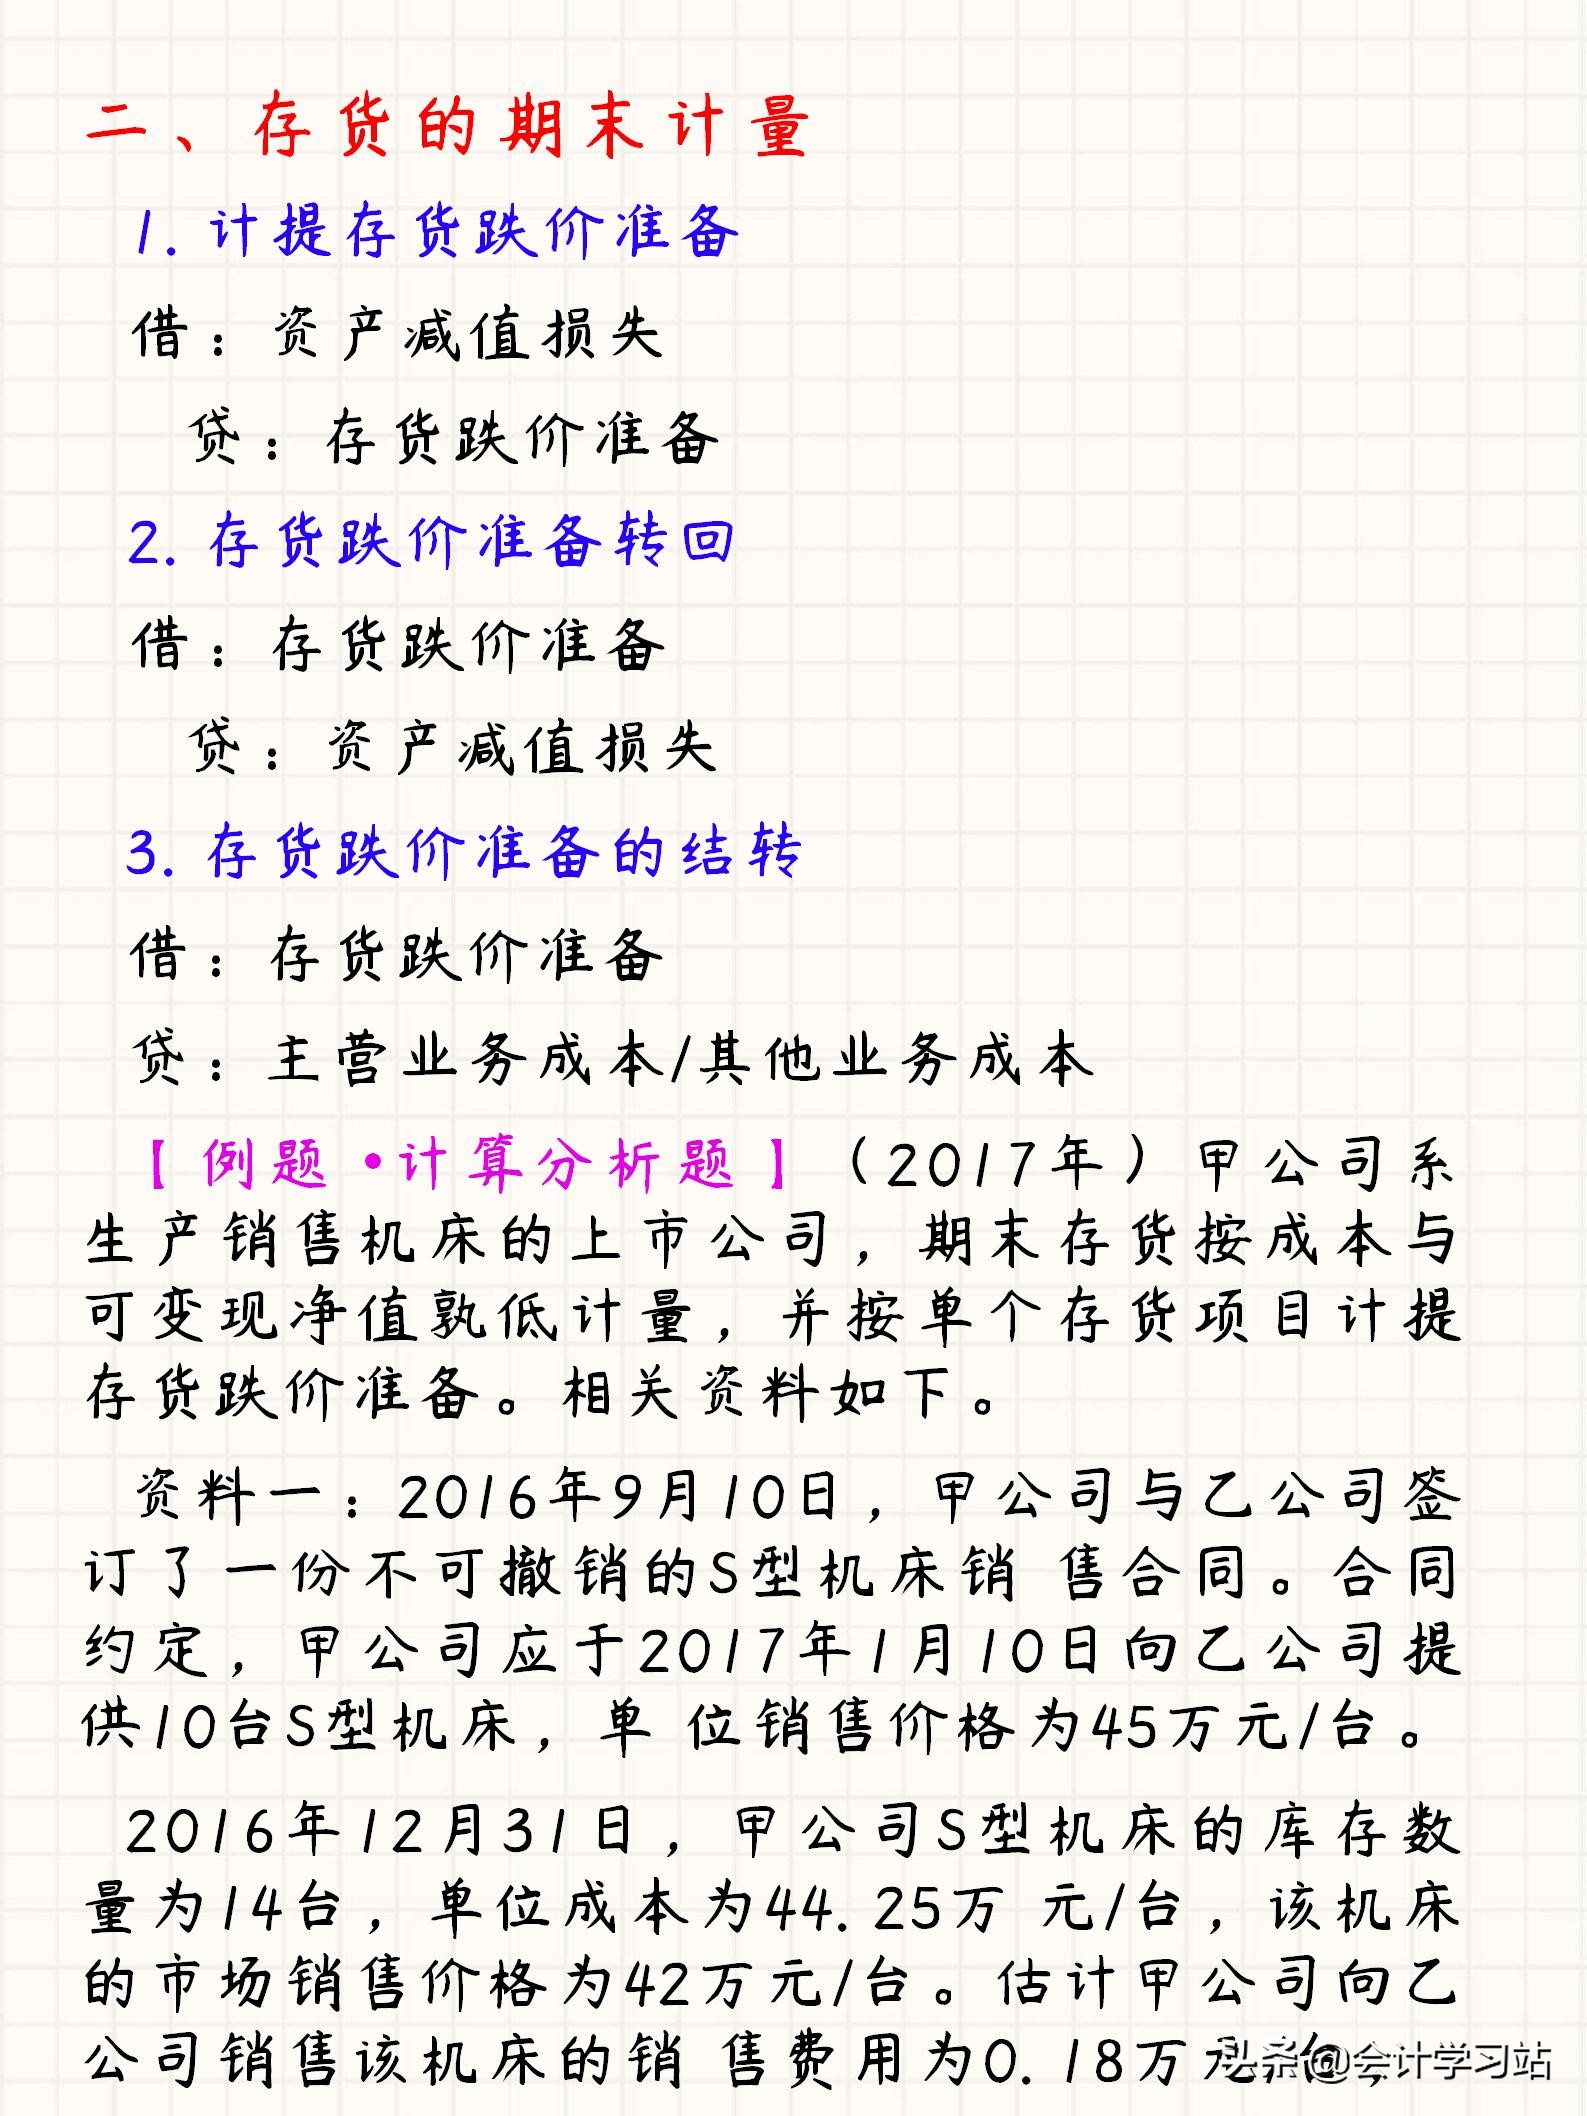 二、存货的期末计量
1. 计提存货跌价准备
借：资产减值损失
贷：存货跌价准备
2. 存货跌价准备转回
借：存货跌价准备
贷：资产减值损失
3. 存货跌价准备的结转
借：存货跌价准备
贷：主营业务成本/其他业务成本
【例题•计算分析题】（2017年）甲公司系
生产销售机床的上市公司，期末存货按成本与
可变现净值孰低计量，并按单个存货项目计提
存货跌价准备。相关资料如下。
资料一：2016年9月10日，甲公司与乙公司签
订了一份不可撤销的S型机床销 售合同。合同
约定，甲公司应于2017年1月10日向乙公司提
供10台S型机床，单 位销售价格为45万元/台。
2016年12月31日，甲公司S型机床的库存数
量为14台，单位成本为44.25万 元/台，该机床
的市场销售价格为42万元/台。估计甲公司向乙
公司销售该机床的销 售费用为0.18万元/台，
头条@会计学习站